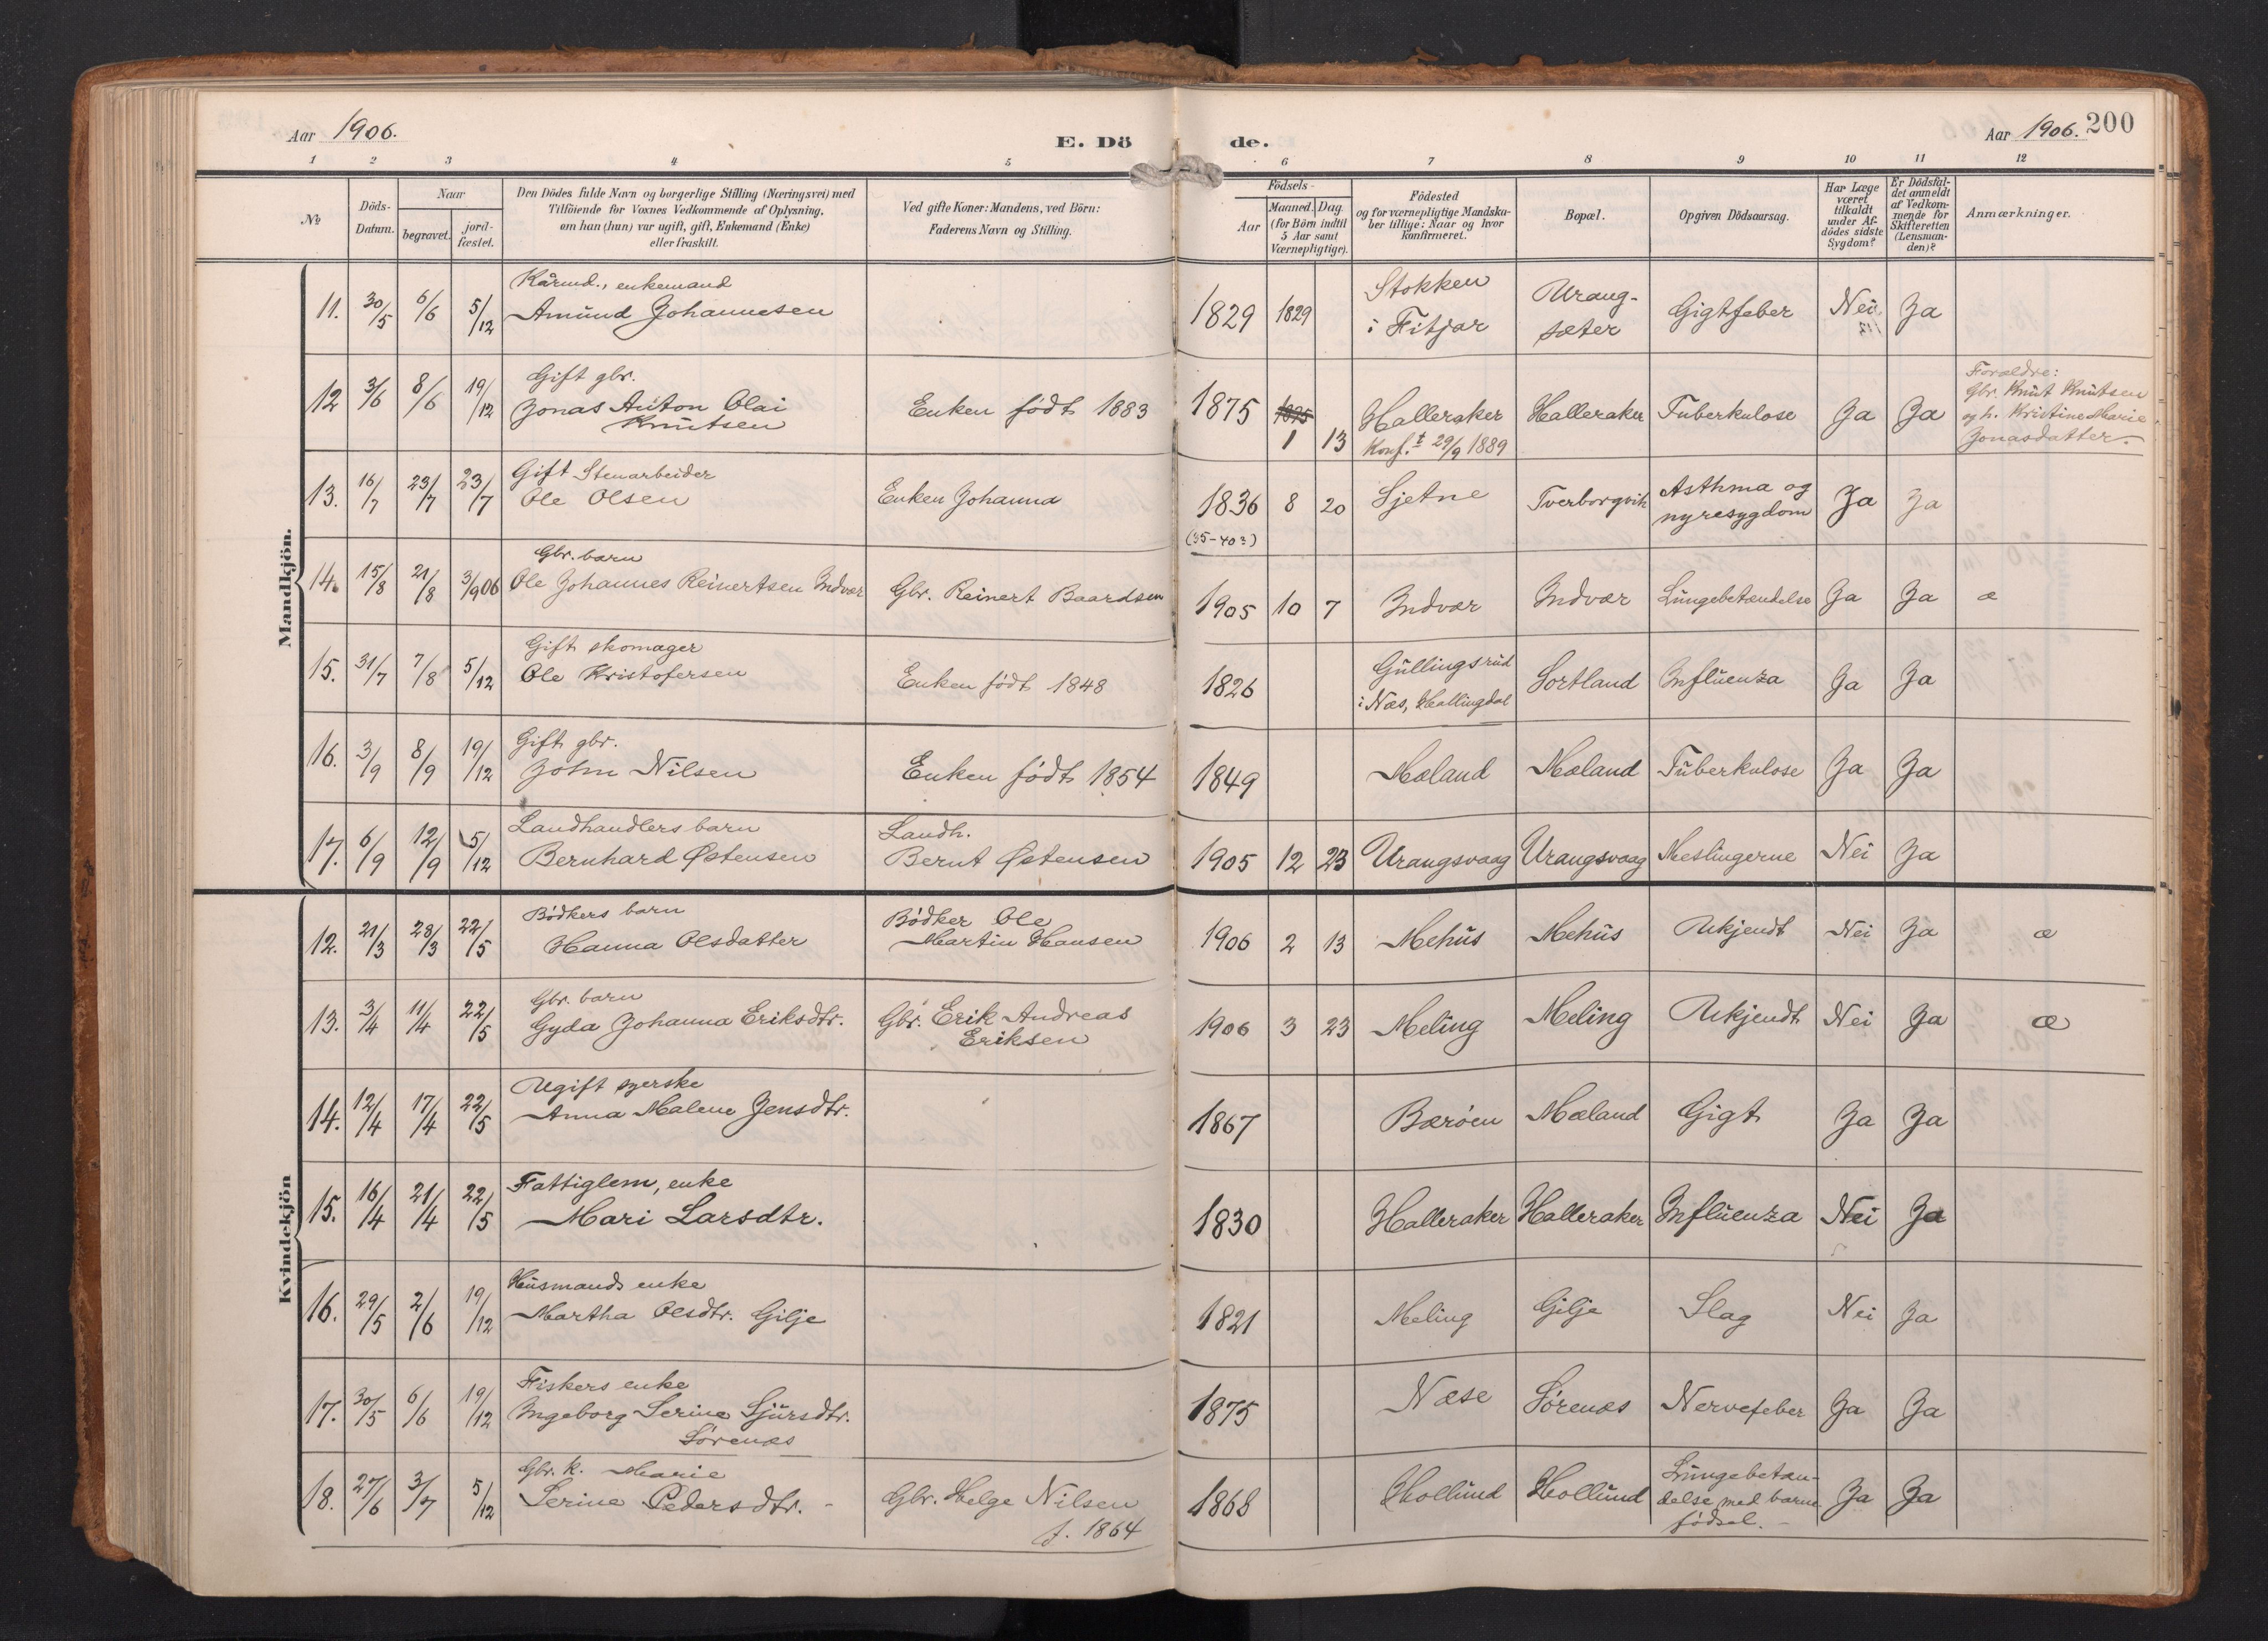 Aar 1906. E. Dö de. Aar 1906. 200
1 2 3 4 5 6 7 8 9 10 11 12
№ Döds-Datum. Naar begravet. jord-fæstet.
Den Dödes fulde Navn og borgerlige Stilling (Næringsvei) med
Tilföiende for Voxnes Vedkommende af Oplysning,
om han (hun) var ugift, gift, Enkemand (Enke)
eller fraskilt.
Ved gifte Koner: Mandens, ved Börn:
Faderens Navn og Stilling.
Födsels-
Aar Maaned. Dag
(for Börn indtil
5 Aar samt
Værnepligtige).
Födested
og for værnepligtige Mandska-
ber tillige: Naar og hvor
konfirmeret.
Bopæl.
Opgiven Dödsaarsag.
Har Læge
været
tilkaldt
under Af-
dödes sidste
Sygdom?
Er Dödsfal-
det anmeldt
af Vedkom-
mende for
Skifteretten
(Lensman-
den)?
Anmærkninger.
Mandkjön.
Kårmd., enkemand
11. 30/5 6/6 5/12 Amund Johannesen 1829 1829 Stokken
i Fitjar Urang-
sæter Gigtfeber Nei Ja
Gift gbr.
12 3/6 8/6 19/12 Jonas Anton Olai
Knutsen Enken født 1883 1875 1875
1 13 Halleraker
Konf.t 29/9 1889 Halleraker Tuberkulose Ja Ja
Forældre:
Gbr. Knut Knutsen
og h. Kristine Marie
Jonasdatter.
Gift Stenarbeider
13. 16/7 23/7 23/7 Ole Olsen Enken Johanna 1836 8 20 Sjetne Tverborgvik Asthma og
nyresygdom Ja Ja
(35-403)
Gbr. barn
14. 15/8 21/8 3/9 06 Ole Johannes Reinertsen Indvær Gbr. Reinert Baardsen 1905 10 7 Indvær Indvær Lungebetændelse Ja Ja æ
Gift skomager
15. 31/7 7/8 5/12 Ole Kristofersen Enken født 1848 1826 Gullingsrud
i Næs, Hallingdal Sortland Influenza Ja Ja
Gift gbr.
16. 3/9 8/9 19/12 John Nilsen Enken født 1854 1849 Mæland Mæland Tuberkulose Ja Ja
Landhandlers barn Landh.
17. 6/9 12/9 5/12 Bernhard Østensen Bernt Østensen 1905 12 23 Urangsvaag Urangsvaag Meslingerne Nei Ja
Kvindekjön
Bødkers barn Bødker Ole
12. 21/3 28/3 22/5 Hanna Olsdatter Martin Hansen 1906 2 13 Mehus Mehus Ukjendt Nei Ja æ
Gbr. barn
13. 3/4 11/4 22/5 Gyda Johanna Eriksdtr. Gbr. Erik Andreas
Eriksen 1906 3 23 Meling Meling Ukjendt Nei Ja æ
Ugift syerske
14. 12/4 17/4 22/5 Anna Malene Jensdtr. 1867 Bærøen Mæland Gigt Ja Ja
Fattiglem, enke
15. 16/4 21/4 22/5 Mari Larsdtr. 1830 Halleraker Halleraker Influenza Nei Ja
Husmands enke
16. 29/5 2/6 19/12 Martha Olsdtr. Gilje 1821 Meling Gilje Slag Nei Ja
Fiskers enke
17. 30/5 6/6 19/12 Ingeborg Serine Sjursdtr.
Sørenæs 1875 Næse Sørenæs Nervefeber Ja Ja
Gbr. k. Marie
18. 27/6 3/7 5/12 Serine Pedersdtr. Gbr. Helge Nilsen
f. 1864 1868 Hollund Hollund Lungebetæn-
delse med barne
fødsel. Ja Ja